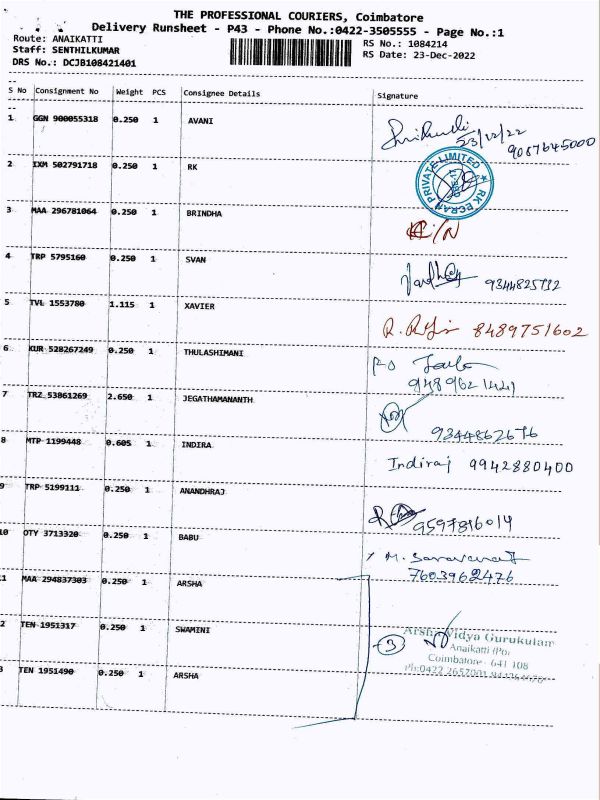 THE PROFESSIONAL COURIERS, Coimbatore
Delivery Runsheet - P43 - Phone No.:0422-3505555 - Page No.:1
Route: ANAIKATTI
RS No.: 1084214
Staff: SENTHILKUMAR
RS Date: 23-Dec-2022
DRS No.: DCJB108421401
S No Consignment No Weight PCS Consignee Details Signature
1 GGN 900055318 0.250 1 AVANI
23/12/22
9087645000
2 IXM 502791718 0.250 1 RK
RK ECRAN PRIVATE LIMITED
3 MAA 296781064 0.250 1 BRINDHA
4 TRP 5795160 0.250 1 SVAN
5 TVL 1553780 1.115 1 XAVIER
8489751602
6 KUR 528267249 0.250 1 THULASHIMANI
7 TRZ 53861269 2.650 1 JEGATHAMANANTH
9344862676
8 MTP 1199448 0.605 1 INDIRA
Indiraj 9942880400
9 TRP 5199111 0.250 1 ANANDHRAJ
9597816014
10 OTY 3713320 0.250 1 BABU
7603962476
1 MAA 294837303 0.250 1 ARSHA
2 TEN 1951317 0.250 1 SWAMINI
3
Arsha Vidya Gurukulam
Anaikatti (Po)
Coimbatore - 641 108
3 TEN 1951490 0.250 1 ARSHA